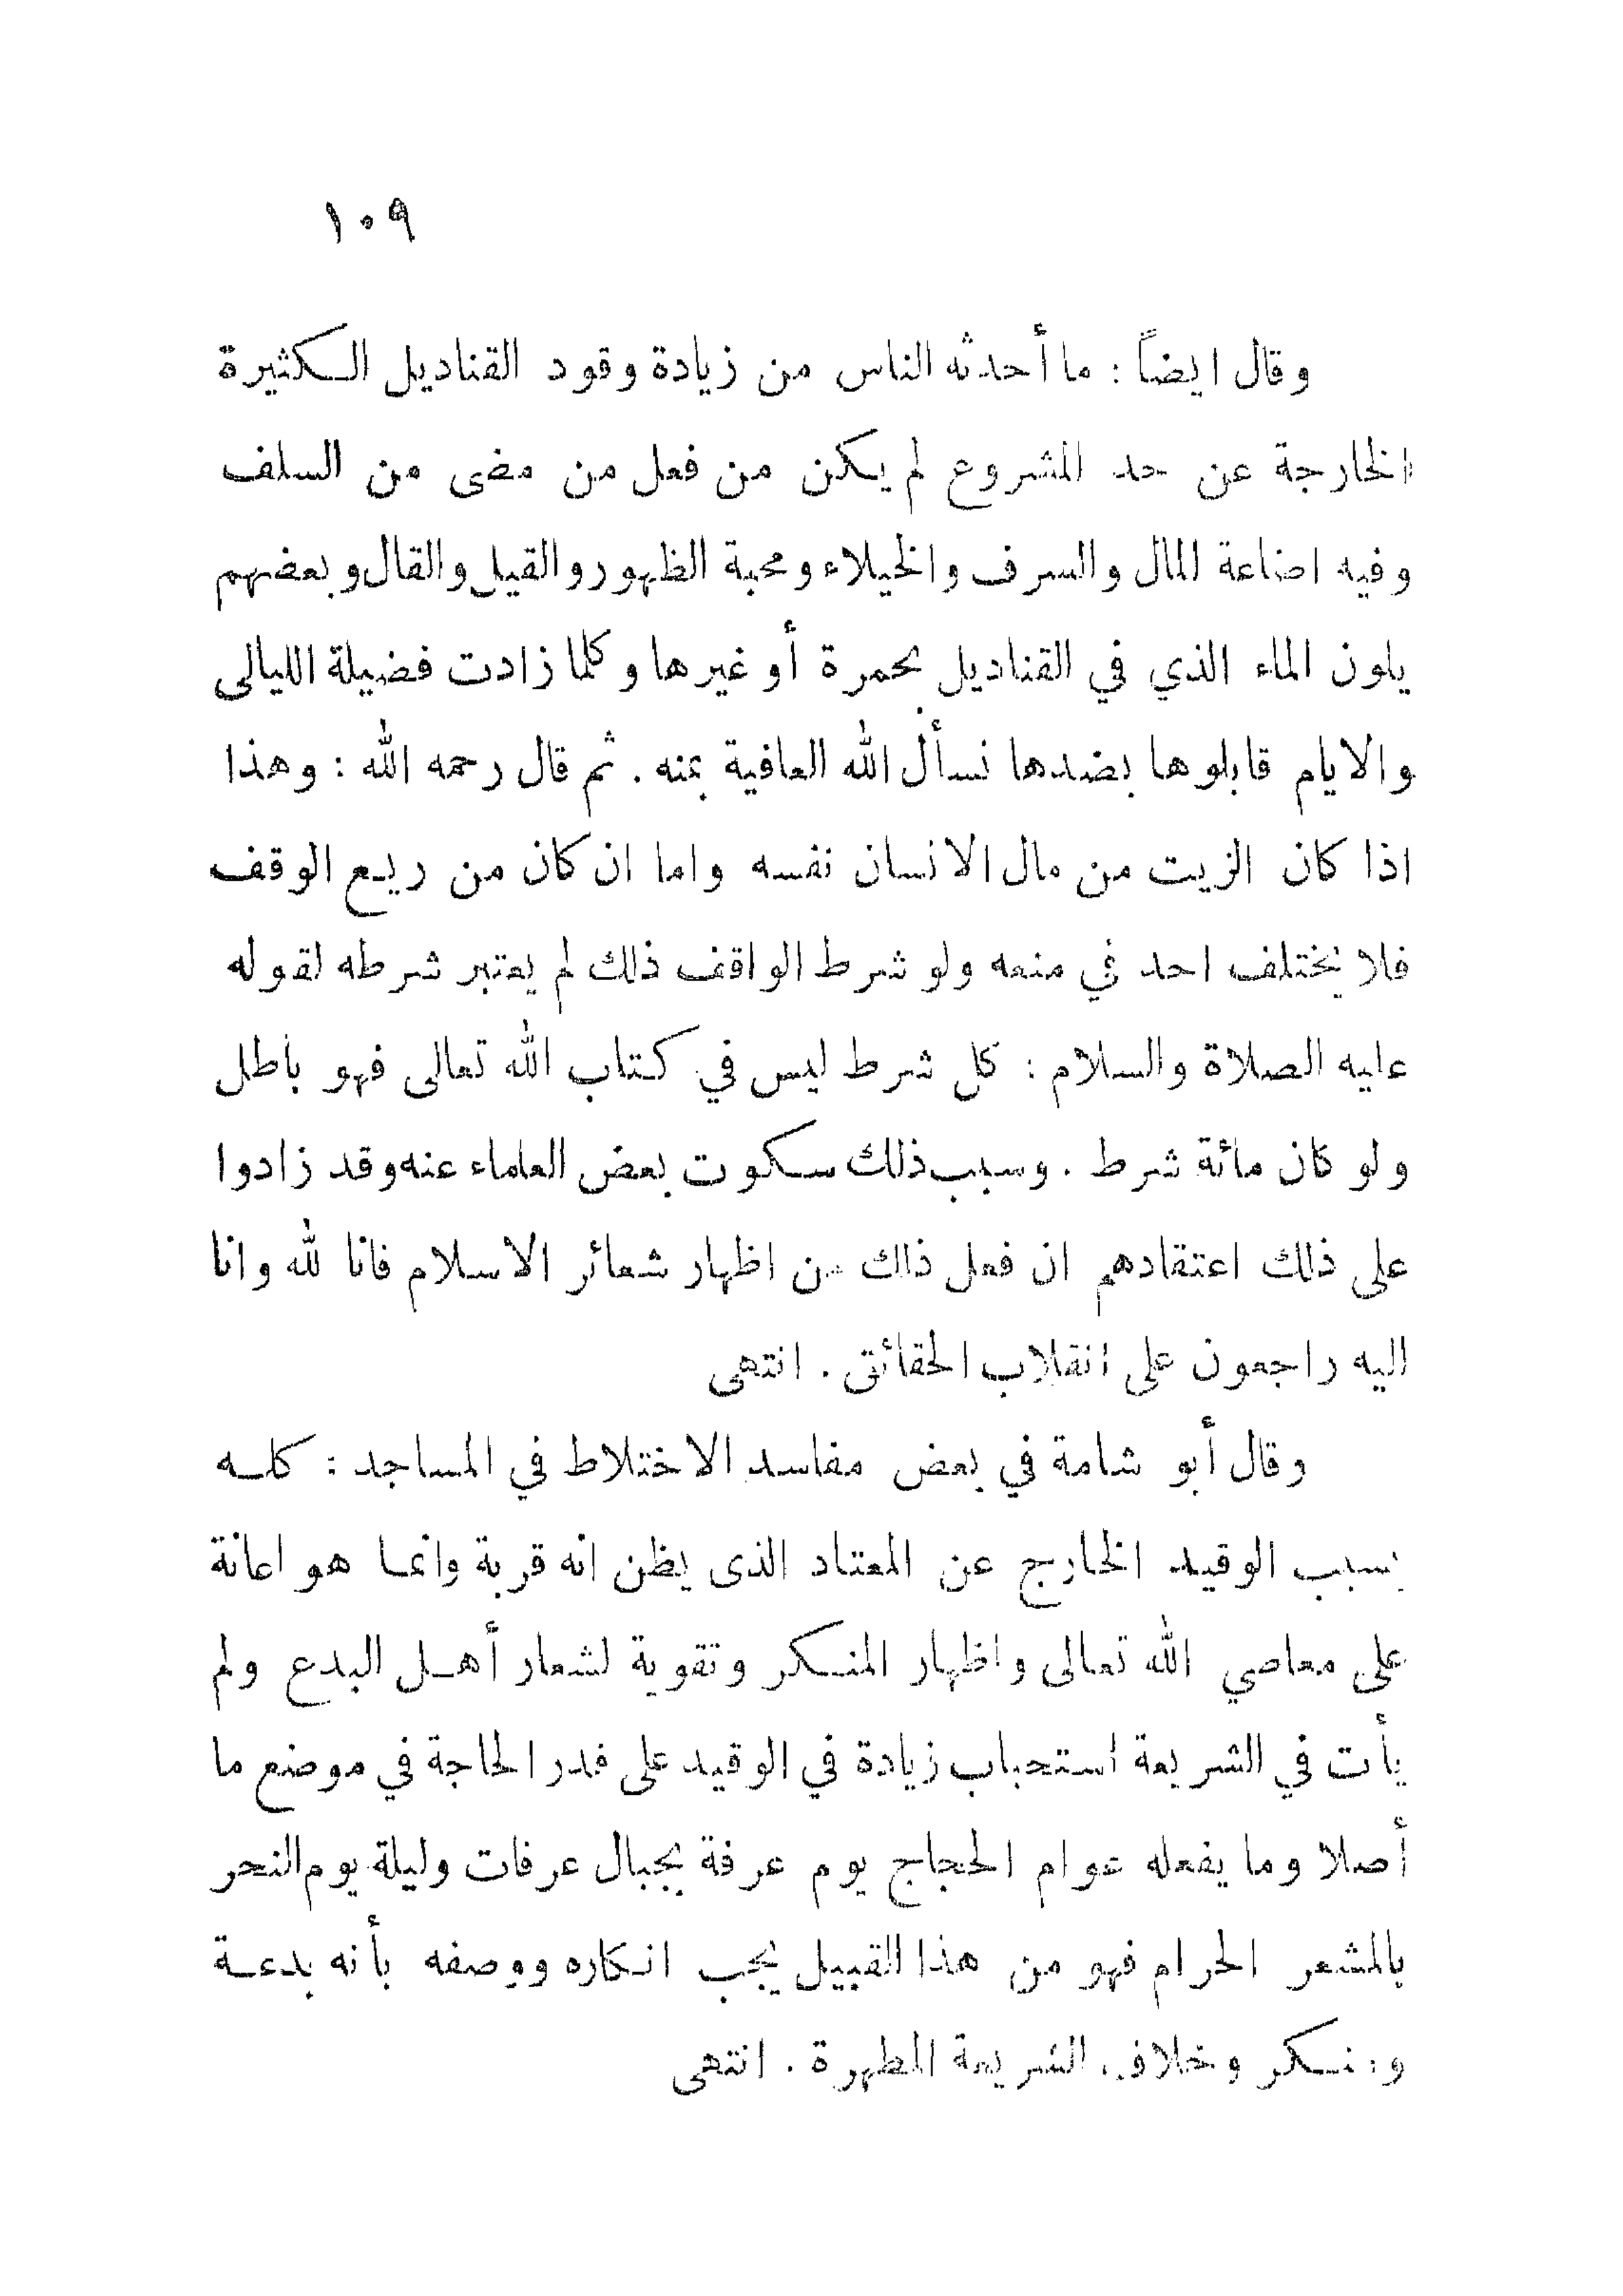 ١٠٩
وقال ايضاً : ما أحدثه الناس من زيادة وقود القناديل الكثيرة
الخارجة عن حد المشروع لم يكن من فعل من مضى من السلف
وفيه اضاعة المال والسرف والخيلاء ومحبة الظهور والقيل والقال وبعضهم
يلون الماء الذي في القناديل بحمرة أو غيرها وكلما زادت فضيلة الليالى
والايام قابلوها بضدها نسأل الله العافية بمنه . ثم قال رحمه الله : وهذا
اذا كان الزيت من مال الانسان نفسه واما ان كان من ريع الوقف
فلا يختلف احد في منعه ولو شرط الواقف ذلك لم يعتبر شرطه لقوله
عليه الصلاة والسلام : كل شرط ليس في كتاب الله تعالى فهو باطل
ولو كان مائة شرط . وسبب ذلك سكوت بعض العلماء عنه وقد زادوا
على ذلك اعتقادهم ان فعل ذلك من اظهار شعائر الاسلام فانا لله وانا
اليه راجعون على انقلاب الحقائق . انتهى
وقال أبو شامة في بعض مفاسد الاختلاط في المساجد : كله
بسبب الوقيد الخارج عن المعتاد الذى يظن انه قربة وانما هو اعانة
على معاصي الله تعالى واظهار المنكر وتقوية لشعار أهل البدع ولم
يأت في الشريعة استحباب زيادة في الوقيد على قدر الحاجة في موضع ما
أصلا وما يفعله عوام الحجاج يوم عرفة بجبال عرفات وليلة يوم النحر
بالمشعر الحرام فهو من هذا القبيل يجب انكاره ووصفه بأنه بدعة
ومنكر وخلاف الشريعة المطهرة . انتهى